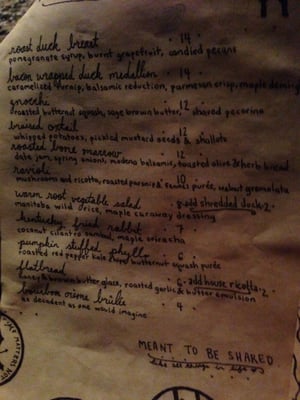 roast duck breast · 14
pomegranate syrup, burnt grapefruit, candied pecans
bacon wrapped duck medallion · 14
caramelized turnip, balsamic reduction, parmesan crisp, maple
gnocchi 12
roasted butternut squash, sage brown butter, shaved pecorino
braised oxtail 12
whipped potatoes, pickled mustard seeds & shallots
roasted bone marrow
date jam, spring onions, modena balsamic, toasted olive & herb bread
ravioli 10
mushrooms and ricotta, roasted parsnip & fennel purée, walnut gremolata
warm root vegetable salad 8 add shredded duck 2
manitoba wild rice, maple caraway dressing
kentucky fried rabbit 7
coconut cilantro sambal, maple sriracha
pumpkin stuffed phyllo 6
roasted red pepper kale butternut squash purée
flatbread 6 add house ricotta 2
honey & brown butter glaze, roasted garlic & butter emulsion
bourbon crème brûlée 4
as decadent as one would imagine
MEANT TO BE SHARED
like all things in life
MATTERS NOT